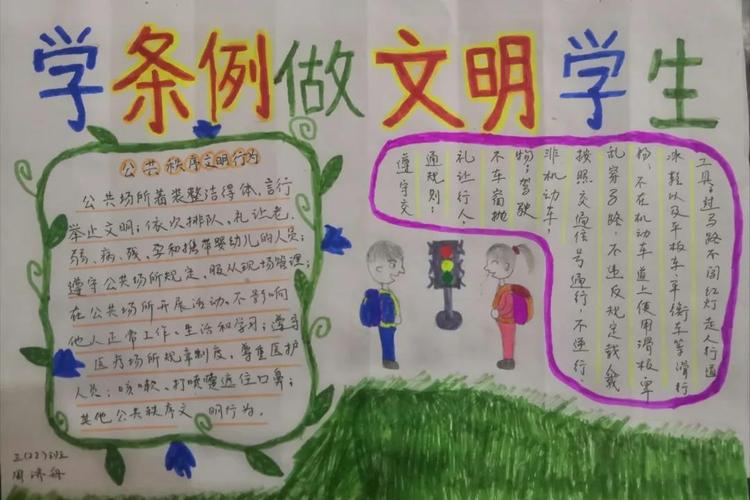 学条例做文明学生
公共秩序文明行为
公共场所着装整洁得体,言行
举止文明;依次排队,礼让老、
弱、病、残、孕和携带婴幼儿的人员;
遵守公共场所规定,服从现场管理;
在公共场所开展活动,不影响
他人正常工作、生活和学习;遵守
医疗场所规章制度,尊重医护
人员;咳嗽、打喷嚏遮住口鼻;
其他公共秩序文明行为。
遵守交
通规则:
礼让行人,
不车窗抛
物;驾驶
非机动车
按照交通信号通行,不逆行,
乱穿马路,不违反规定载人载
物,不在机动车道上使用滑板、旱
冰鞋以及平板车、平衡车等滑行
工具;过马路不闯红灯 走人行道